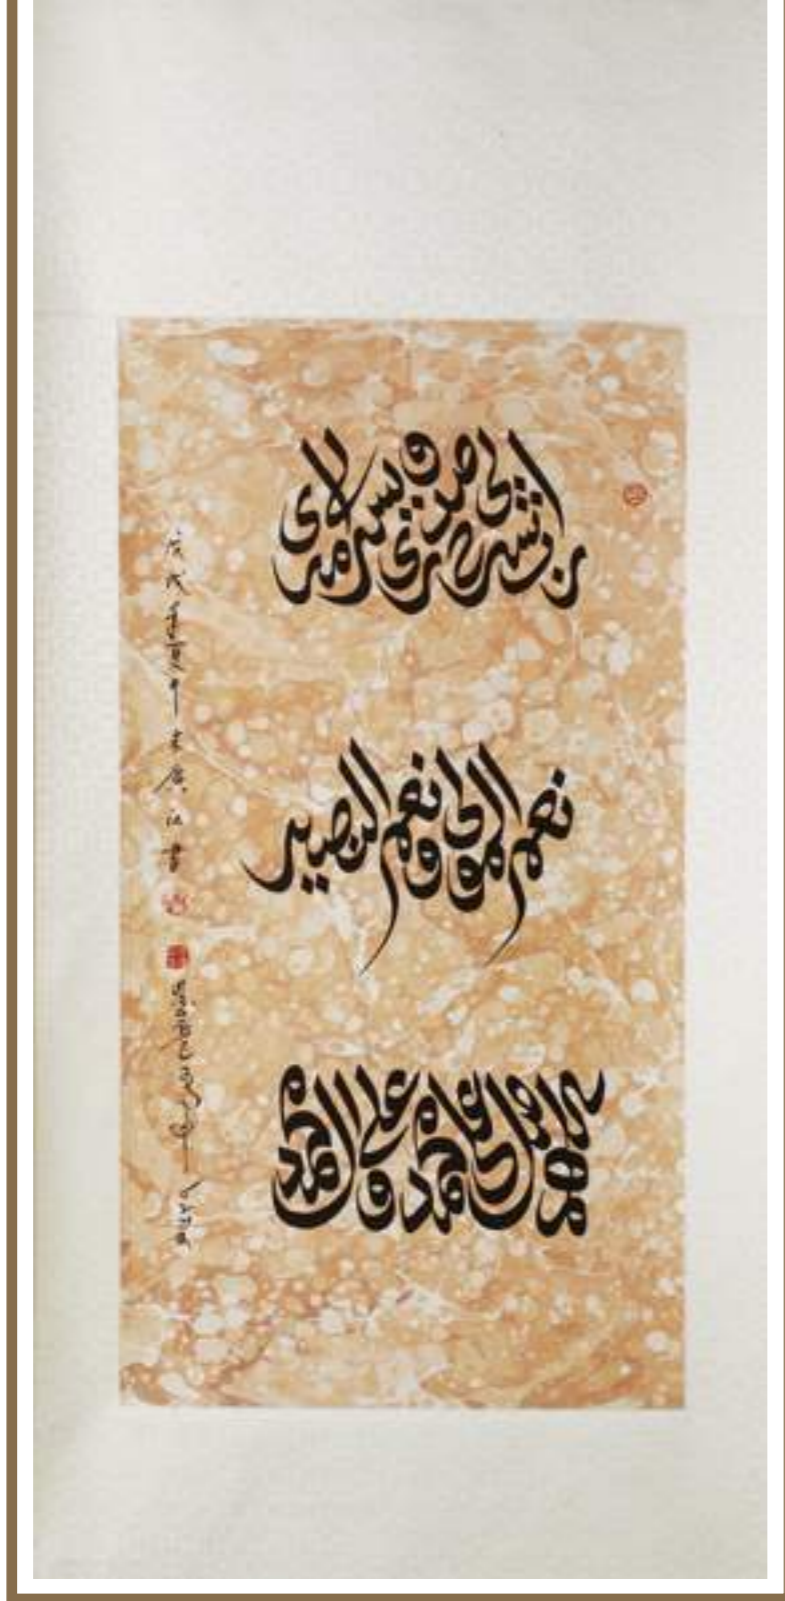 رب اشرح لي صدري ويسر لي أمري
نعم المولى ونعم النصير
اللهم صل على محمد وعلى آل محمد
戊戌年夏 米廣江書